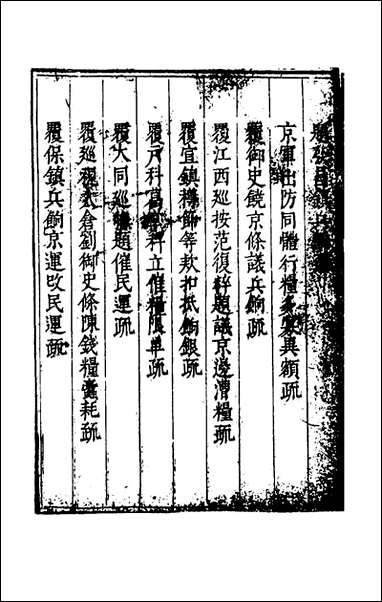 京軍出防同體行糧多寡異額疏
覆御史饒京條議兵餉疏
覆江西巡按范復粹題議京邊漕糧疏
覆宜鎮撙節等欵扣抵餉銀疏
覆戸科葛科立催糧限單疏
覆大同巡題催民運疏
覆巡視太倉劉御史條陳錢糧蠹耗疏
覆保鎮兵餉京運改民運疏